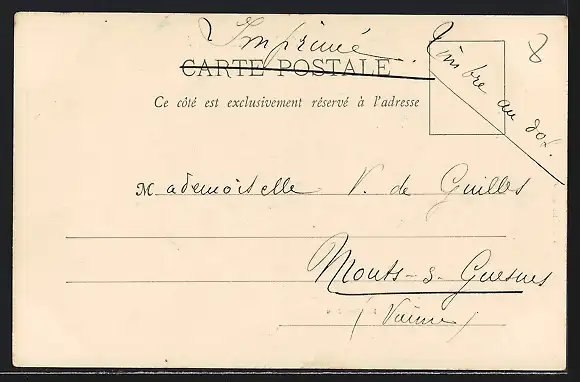 Imprimé.
CARTE POSTALE
Timbre au dos.
8
Ce côté est exclusivement réservé à l'adresse
Mademoiselle V. de Guilles
Monts-s-Guesnes
(Vienne)